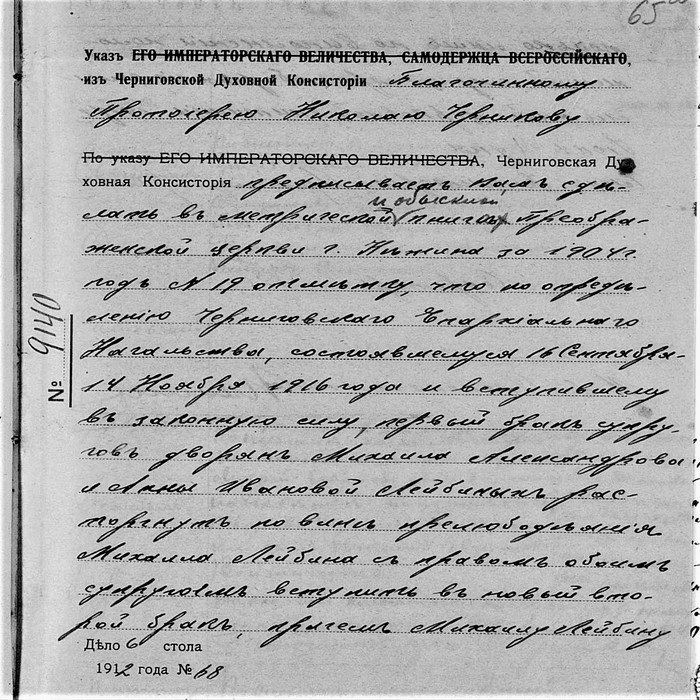 65
Указъ ЕГО ИМПЕРАТОРСКАГО ВЕЛИЧЕСТВА, САМОДЕРЖЦА ВСЕРОССІЙСКАГО,
изъ Черниговской Духовной Консисторіи Благочинному
Протоіерею Николаю Черникову
По указу ЕГО ИМПЕРАТОРСКАГО ВЕЛИЧЕСТВА, Черниговская Ду-
ховная Консисторія предписываетъ Вамъ сдѣ-
и обыскной
лать въ метрической книгѣ Преобра-
женской церкви г. Нѣжина за 1904 г.
годъ N 19 отмѣтку, что по опредѣ-
ленію Черниговскаго Епархіальнаго
Начальства, состоявшемуся 16 Сентября-
14 Ноября 1916 года и вступившему
въ законную силу, первый бракъ супру-
говъ дворянъ Михаила Александрова
и Анны Ивановой Лейбиныхъ рас-
торгнутъ по винѣ прелюбодѣянія
Михаила Лейбина съ правомъ обоимъ
супругамъ вступить въ новый вто-
рой бракъ, причемъ Михаилу Лейбину
Дѣло 6 стола
1912 года № 68
№ 9140